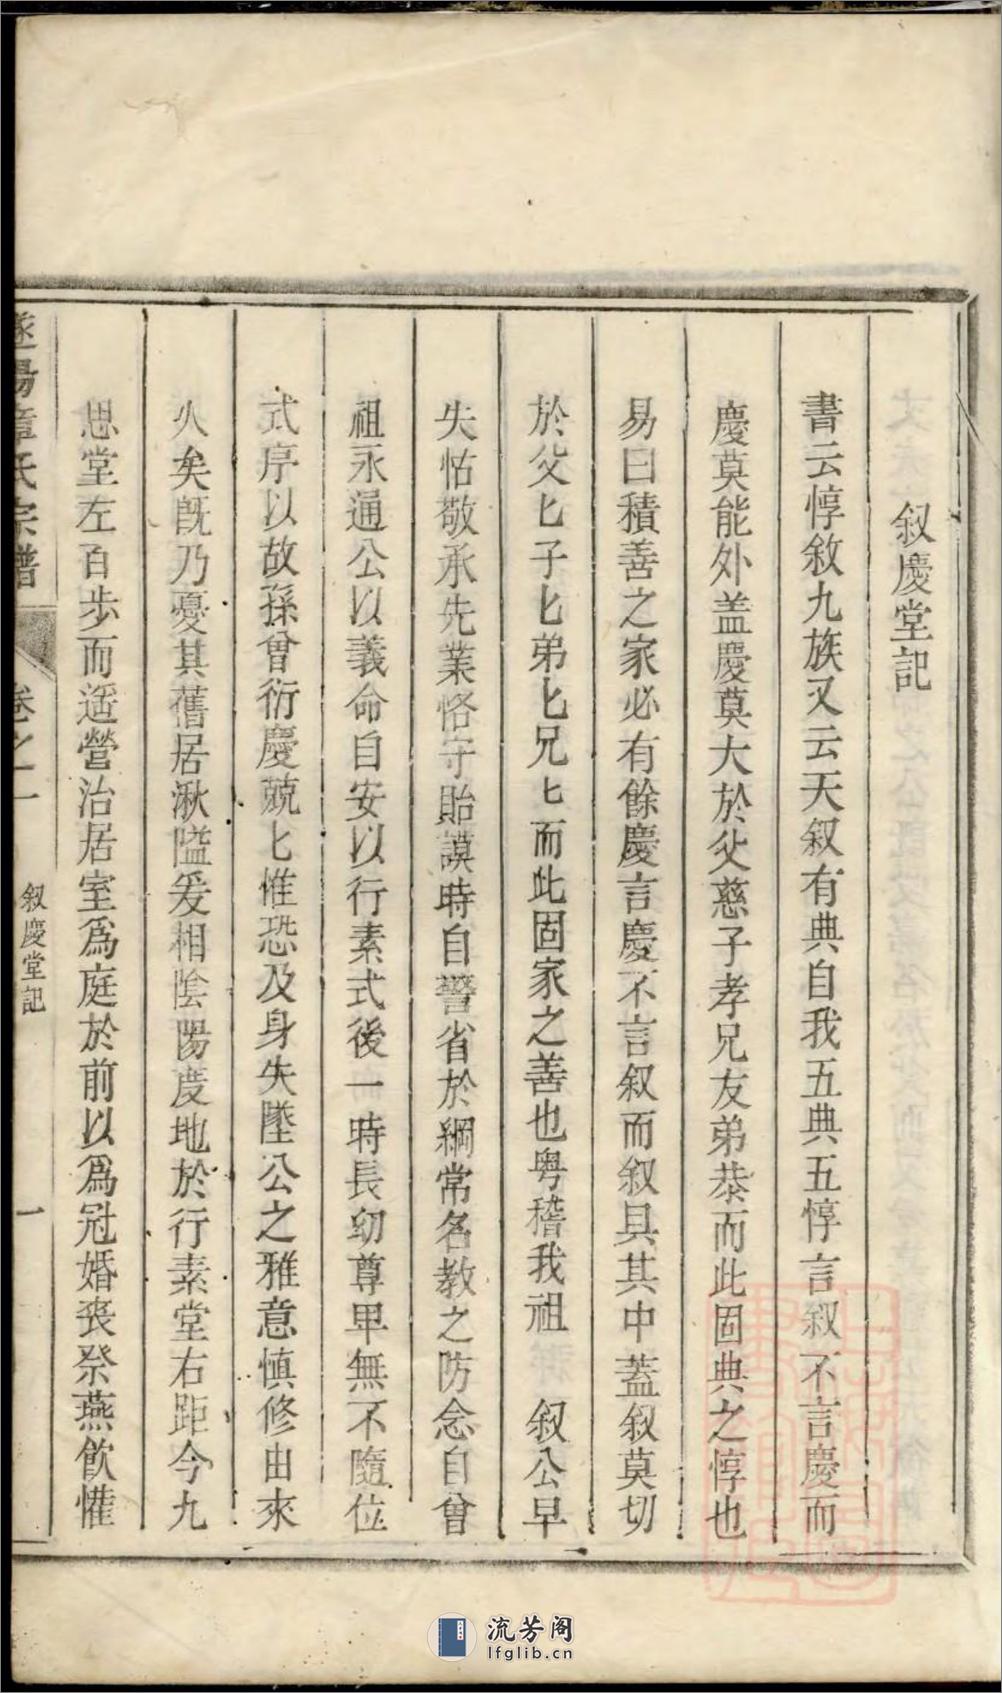 叙慶堂記
書云惇敘九族又云天叙有典自我五典五惇言叙不言慶而
慶莫能外盖慶莫大於父慈子孝兄友弟恭而此固典之惇也
易曰積善之家必有餘慶言慶不言叙而叙具其中蓋叙莫切
於父匕子匕弟匕兄匕而此固家之善也粤稽我祖 叙公早
失怙敬承先業恪守貽謨時自警省於綱常名教之防念自曾
祖永通公以義命自安以行素式後一時長幼尊卑無不隨位
式序以故孫曾衍慶兢匕惟恐及身失墜公之雅意慎修由來
火矣旣乃憂其舊居湫隘爰相陰陽度地於行素堂右距今九
思堂左百步而遥營治居室爲庭於前以爲冠婚丧祭燕飮懽
遂陽章氏宗譜
卷之一
叙慶堂記
一
流芳阁
lfglib.cn